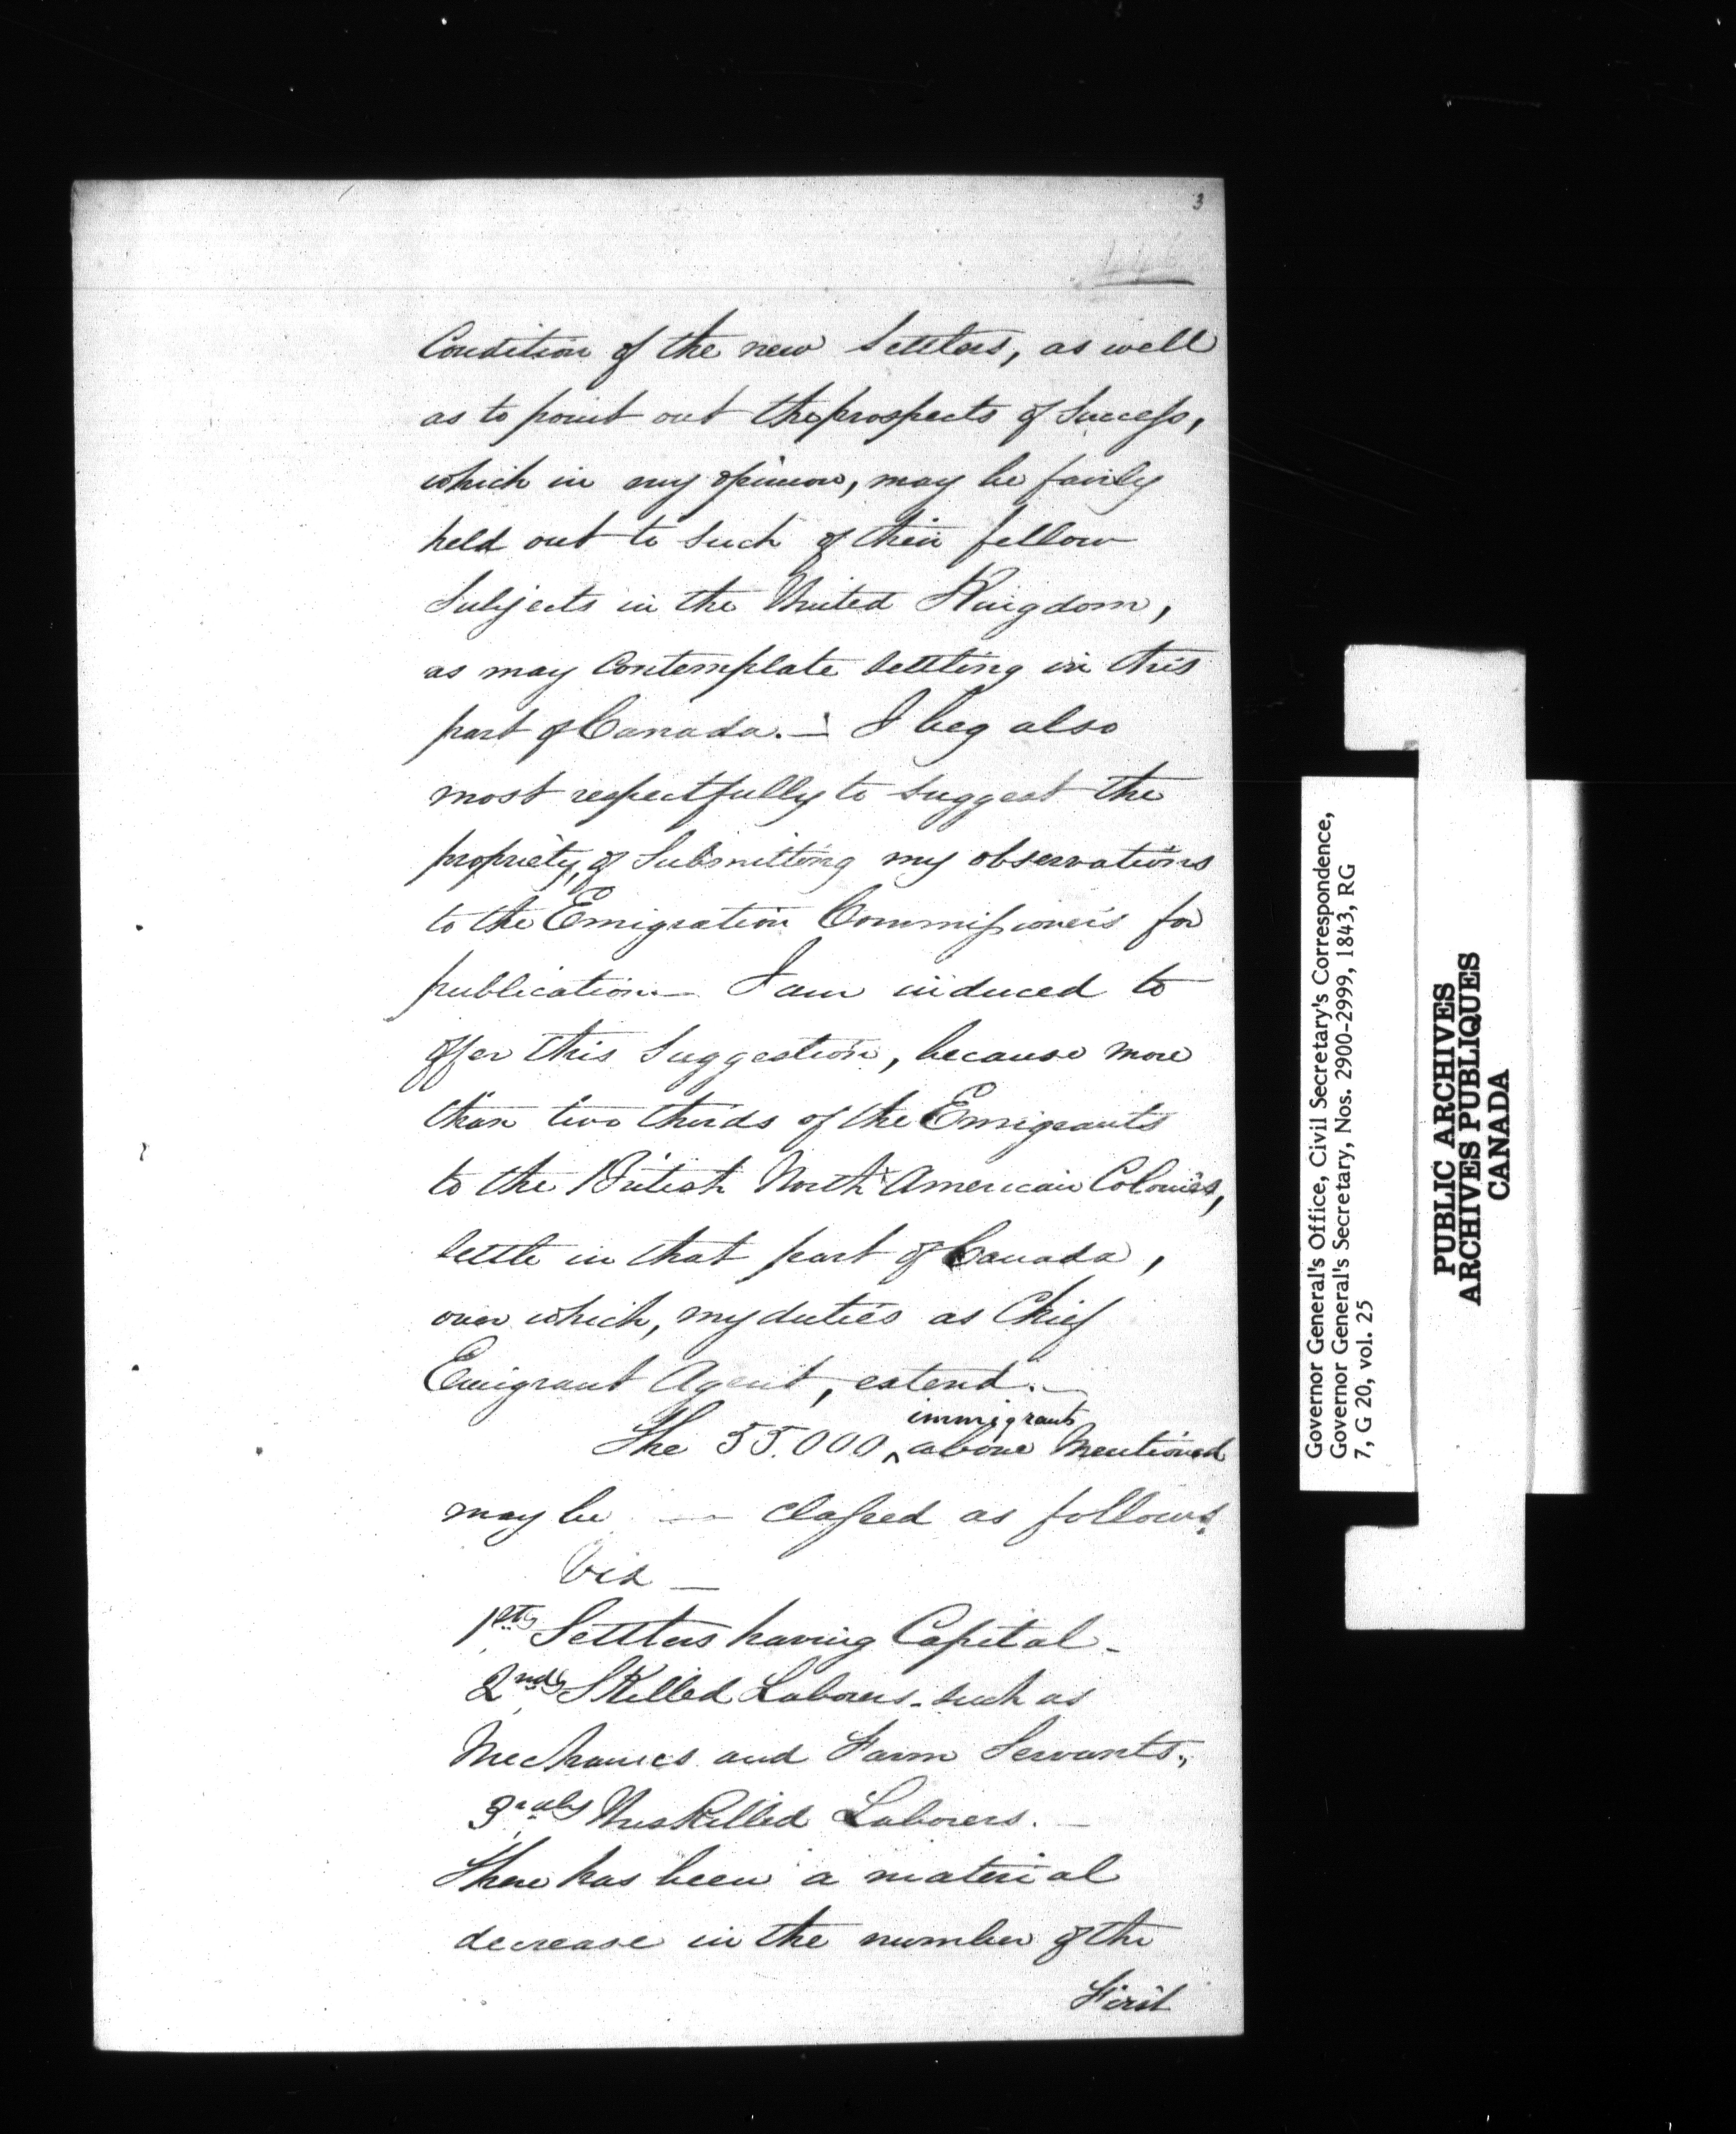 3
Condition of the new Settlers, as well
as to point out the prospects of Success,
which in my opinion, may be fairly
held out to such of their fellow
Subjects in the United Kingdom,
as may Contemplate settling in this
part of Canada. — I beg also
most respectfully to suggest the
propriety, of Submitting my observations
to the Emigration Commissioners for
publication — I am induced to
offer this Suggestion, because more
than two thirds of the Emigrants
to the British North American Colonies,
settle in that part of Canada,
over which, my duties as Chief
Emigrant Agent, extend. —
immigrants
The 55.000 ^ above Mentioned
may be — classed as follows,
Viz —
1stly Settlers having Capital —
2ndly Skilled Laborers, such as
Mechanics and Farm Servants,
3rdly Unskilled Laborers. —
There has been a material
decrease in the number of the
First
Governor General's Office, Civil Secretary's Correspondence,
Governor General's Secretary, Nos. 2900-2999, 1843, RG
7, G 20, vol. 25
PUBLIC ARCHIVES
ARCHIVES PUBLIQUES
CANADA